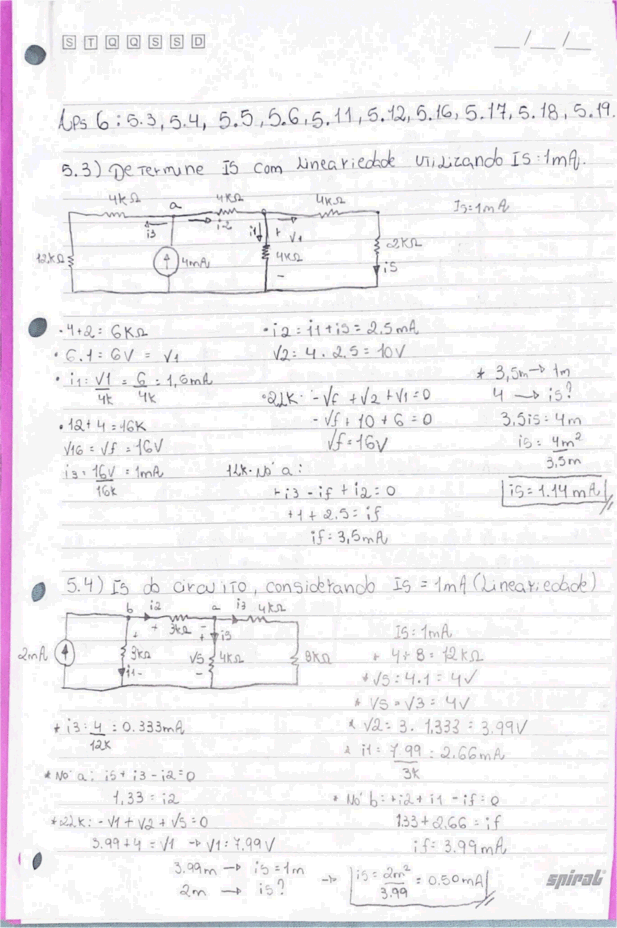 S T Q Q S S D
__/__/__
LPS 6 : 5.3, 5.4, 5.5, 5.6, 5.11, 5.12, 5.16, 5.17, 5.18, 5.19.
5.3) Determine I5 com Lineariedade utilizando I5 = 1mA.
4KΩ a 4KΩ 4KΩ I5 = 1mA
i3 i2 i1 + V1
12KΩ 4mA 4KΩ - 2KΩ i5
• 4+2 = 6KΩ
• 6.1 = 6V = V1
• i1 = V1/4k = 6/4k = 1,5mA
• 12+4 = 16K
V16 = Vf = 16V
i3 = 16V/16k = 1mA
• i2 = i1 + i5 = 2.5mA
V2 = 4 . 2.5 = 10V
• 2LK: -Vf + V2 + V1 = 0
-Vf + 10 + 6 = 0
Vf = 16V
1LK. Nó a:
+i3 - if + i2 = 0
+1 + 2.5 = if
if = 3,5mA
* 3,5m → 1m
4 → i5?
3,5i5 = 4m
i5 = 4m²/3,5m
i5 = 1.14mA
5.4) I5 do circuito, considerando I5 = 1mA (Lineariedade)
b i2 a i3 4KΩ
+ 3KΩ -
2mA + 3KΩ i1 - + V5 - i5 4KΩ 8KΩ
I5 = 1mA
* 4+8 = 12KΩ
* V5 = 4.1 = 4V
* V5 = V3 = 4V
* V2 = 3 . 1,333 = 3.99V
* i1 = 7.99/3k = 2.66mA
* i3 = 4/12k = 0.333mA
* Nó a: i5 + i3 - i2 = 0
1,33 = i2
* 2LK: -V1 + V2 + V5 = 0
3.99+4 = V1 → V1 = 7,99V
* Nó b: +i2 + i1 - if = 0
1.33 + 2.66 = if
if = 3.99mA
3.99m → i5 = 1m
2m → i5?
→ i5 = 2m²/3.99 = 0.50mA
spiral